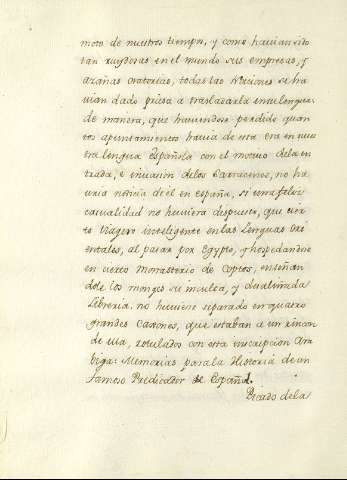 moto de nuestros tiempos, y como havian sido
tan ruydosas en el mundo sus empresas, y
azañas oratorias, todas las Naciones se ha
vian dado priesa a traslazarla en su lengua:
de manera, que haviendose perdido quan
tos apuntamientos havia de esta era en nues
tra lengua Española con el motivo de la en
trada, e invasion de los Sarracenos, no ha
vria noticia de él en españa, si una feliz
casualidad no huviera dispuesto, que cier
to Viagero inteligente en las Lenguas Ori
entales, al pasar por Egypto, y hospedandose
en cierto Monasterio de Coptos, enseñan
dole los monges su inculta, y desaliñada
Libreria, no huviese separado en quatro
grandes Caxones, que estaban a un rincon
de ella, rotulados con esta inscripcion Ara
biga: Memorias para la Historia de un
famoso Predicador de España.
Picado de la